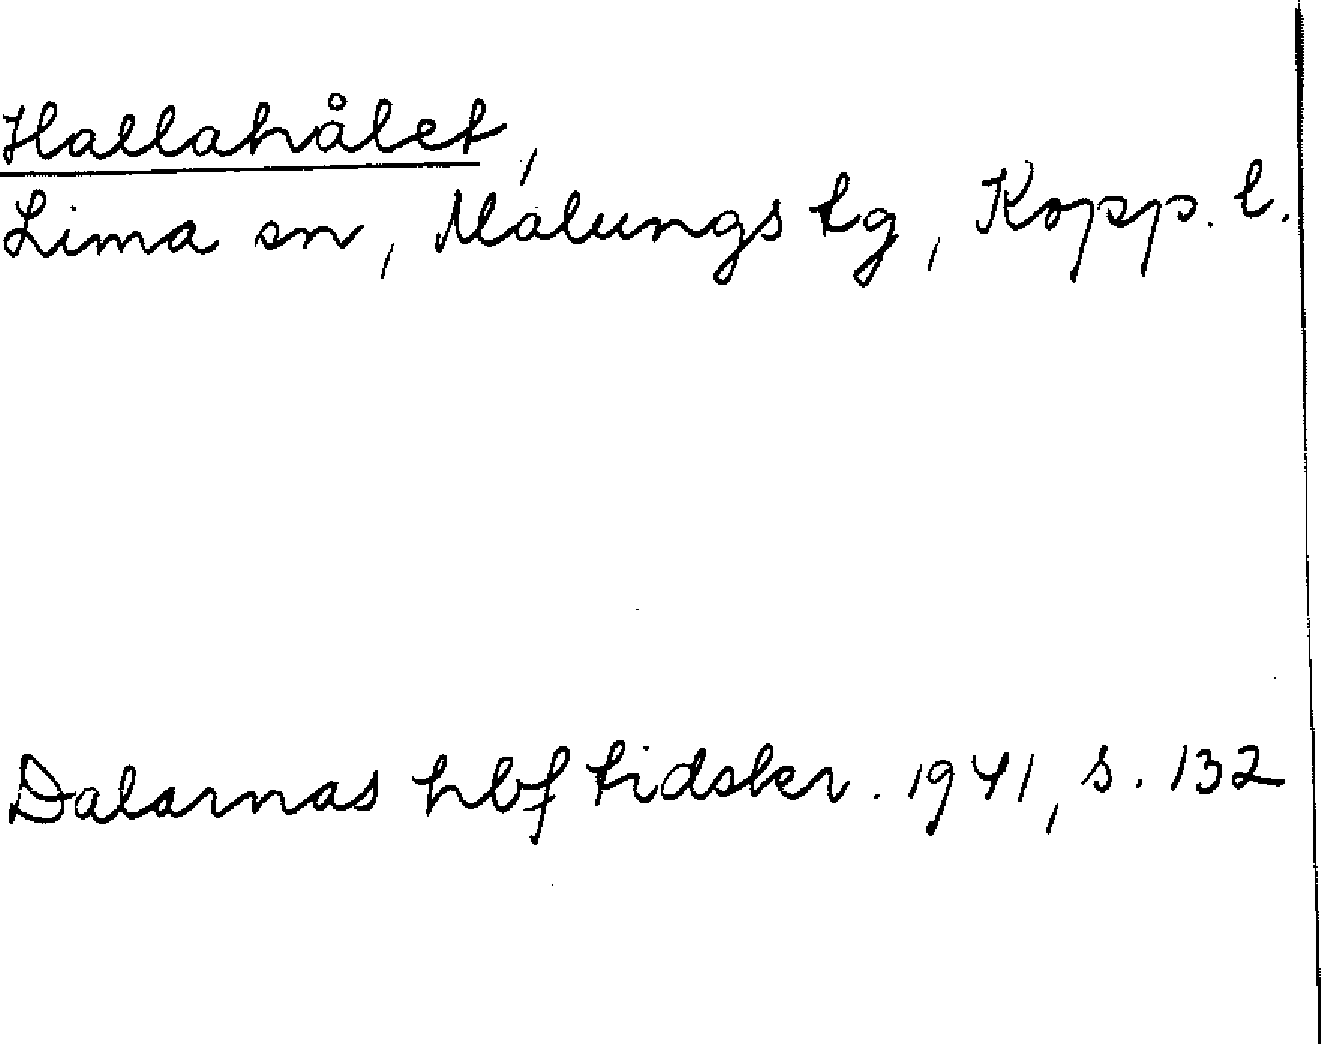 Hallahålet,
Lima sn, Malungs tg, Kopp. l.
Dalarnas hbf tidskr. 1941, s. 132